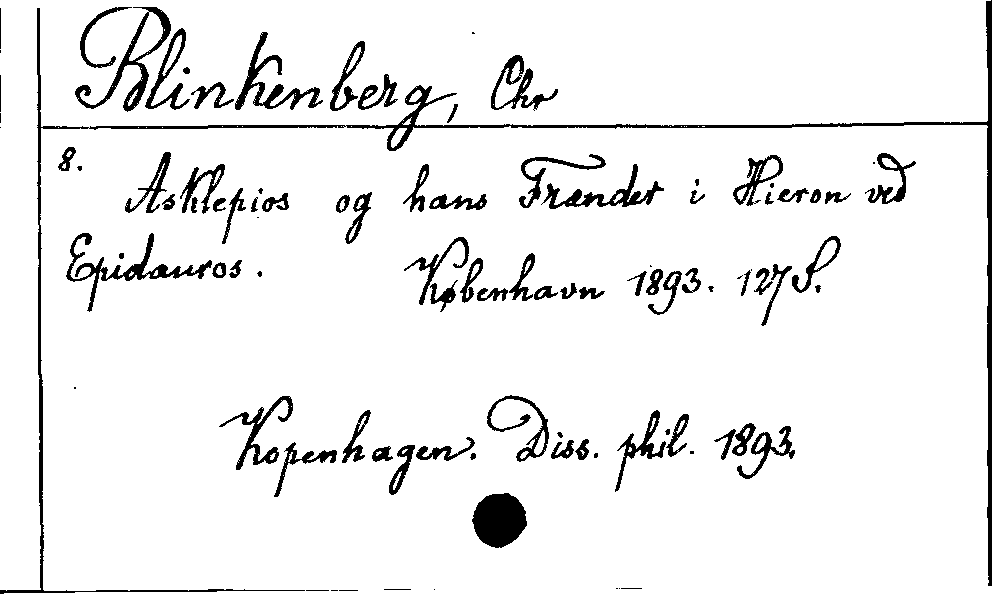 Blinkenberg, Chr
8. Asklepios og hans Frænder i Hieron ved
Epidauros. København 1893. 127 S.
Kopenhagen. Diss. phil. 1893.